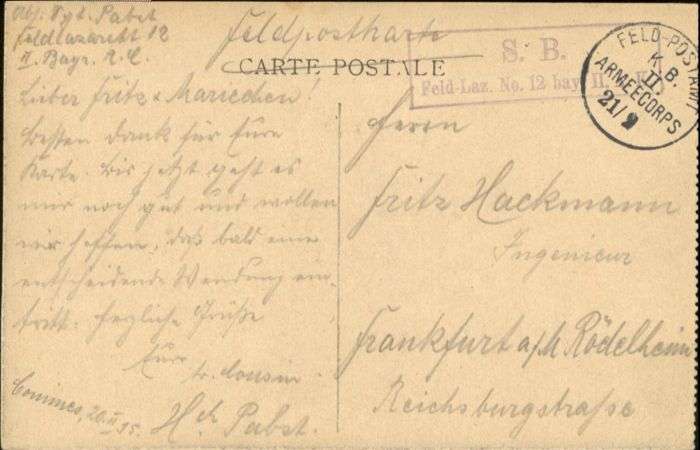 Abs: Pabst
Feldlazarett 12
II. Bayr. A.C.
Feldpostkarte
CARTE POSTALE
S. B.
Feld-Laz. No. 12 bay. II. A.K.
FELD-POST
K. B.
II.
ARMEECORPS
21/2
Lieber Fritz & Mariechen!
Besten Dank für Eure
Karte. Bis jetzt geht es
mir noch gut und wollen
wir hoffen, daß bald eine
entscheidende Wendung ein-
tritt. Herzliche Grüße
Euer
tr. Cousin
Hch Pabst.
Comines, 20.II.15.
Herrn
Fritz Hackmann
Ingenieur
Frankfurt a/M Rödelheim
Reichsburgstraße